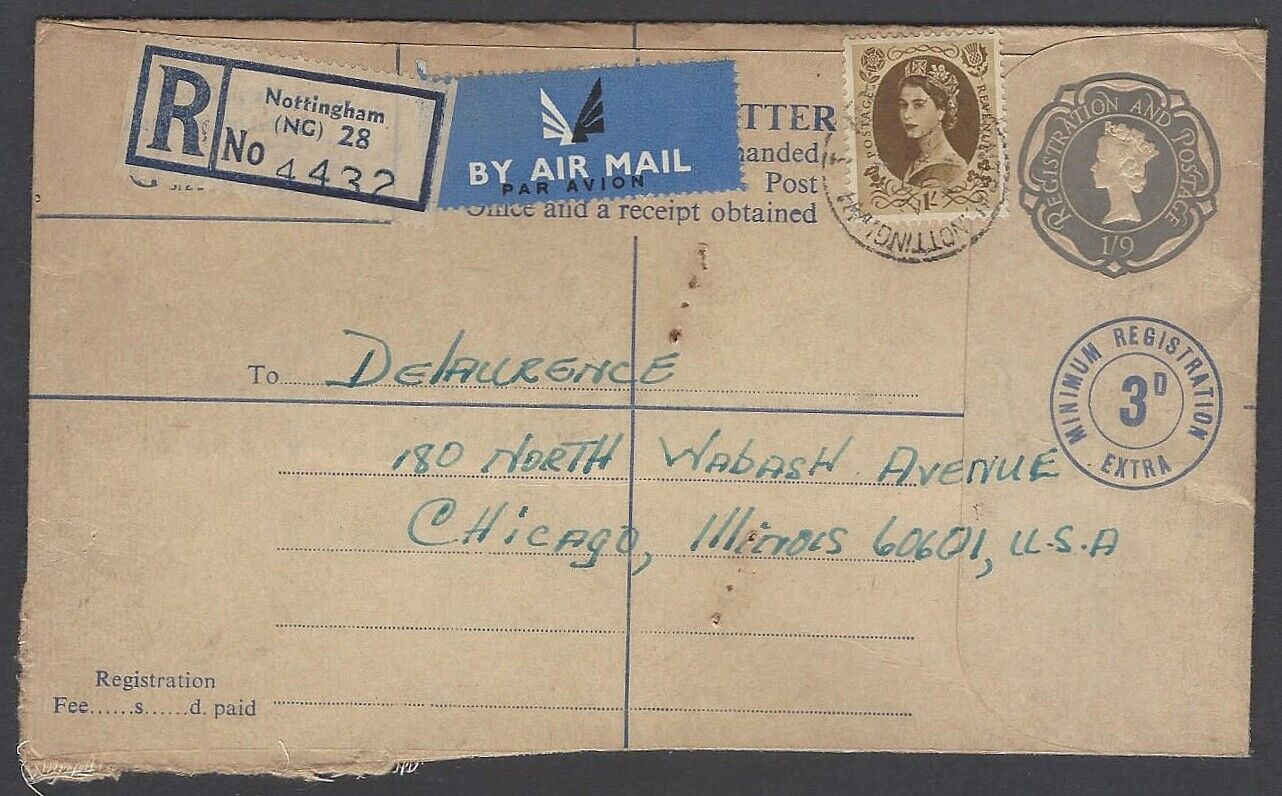 R
Nottingham
(NG) 28
No 4432
BY AIR MAIL
PAR AVION
TTER
handed
Post
Office and a receipt obtained
POSTAGE REVENUE
1/-
NOTTING
REGISTRATION AND POSTAGE
1/9
MINIMUM REGISTRATION
3D
EXTRA
To DeLaurence
180 North Wabash Avenue
Chicago, Illinois 60601, U.S.A
Registration
Fee......s......d. paid